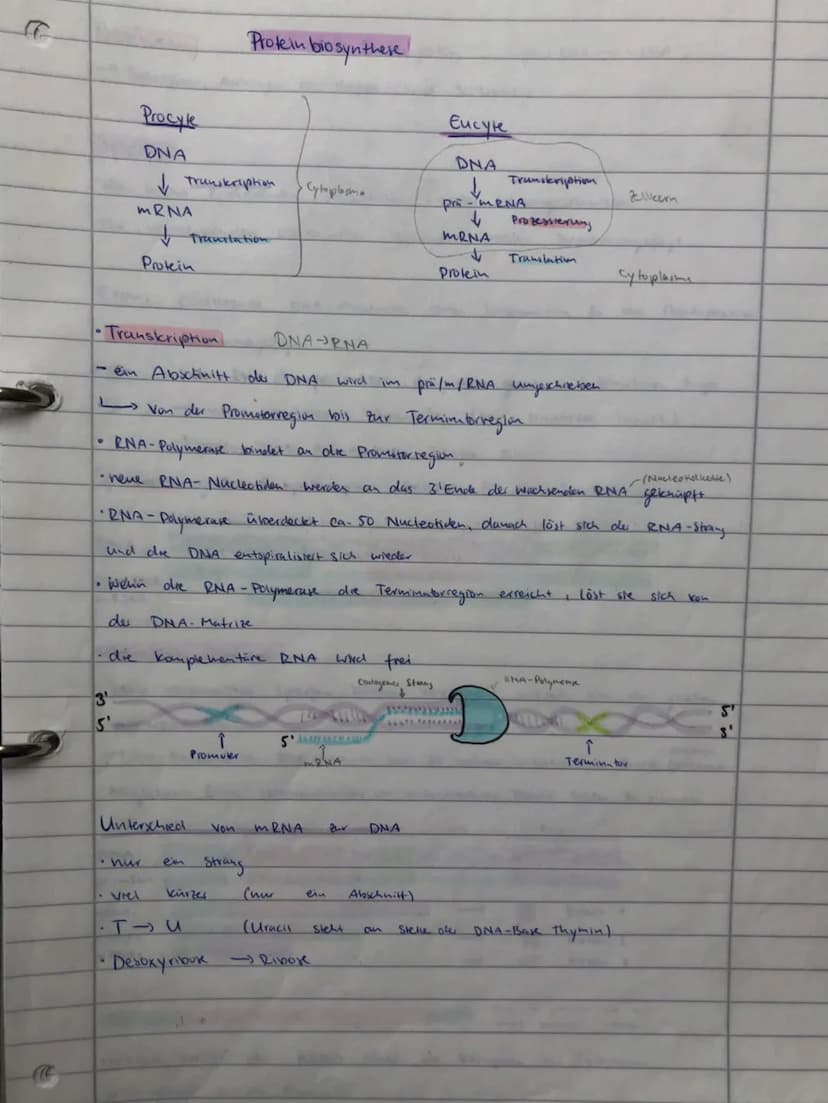 Proteinbiosynthese
Procyte
DNA
↓ Transkription
mRNA
↓ Translation
Protein
Cytoplasma
Eucyte
DNA
↓ Transkription
prä-mRNA
↓ Prozessierung
mRNA
↓ Translation
Protein
Zellkern
Cytoplasma
• Transkription DNA→RNA
- ein Abschnitt der DNA wird im prä/m/RNA umgeschrieben
↳ Von der Promotorregion bis zur Terminatorregion
• RNA-Polymerase bindet an die Promotorregion
• neue RNA-Nucleotiden werden an das 3'Ende der wachsenden RNA (Nucleotidkette) geknüpft
• RNA-Polymerase überdeckt ca. 50 Nucleotiden, danach löst sich der RNA-Strang
und die DNA entspiralisiert sich wieder
• wenn die RNA-Polymerase die Terminatorregion erreicht, löst sie sich von
der DNA-Matrize
• die komplementäre RNA wird frei
Codogener Strang
RNA-Polymerase
3' 5'
5' 3'
Promoter
5'
mRNA
Terminator
Unterschied von mRNA zur DNA
• nur ein Strang
• viel kürzer (nur ein Abschnitt)
• T → U (Uracil steht an Stelle der DNA-Base Thymin)
• Desoxyribose → Ribose